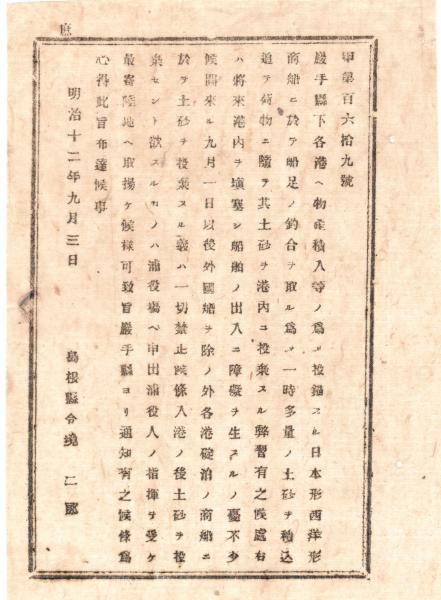 庶
甲第百六拾九號
巖手縣下各港ヘ物産積入等ノ爲メ投錨スル日本形西洋形
商船ニ於テ船足ノ釣合ヲ取ル爲メ一時多量ノ土砂ヲ積込
追テ荷物ニ隨テ其土砂ヲ港内ニ投棄スル弊習有之候處右
ハ將來港内ヲ塡塞シ船舶ノ出入ニ障礙ヲ生スルノ憂不少
候間來ル九月一日以後外國船ヲ除ノ外各港碇泊ノ商船ニ
於テ土砂ヲ投棄スル義ハ一切禁止候條入港ノ後土砂ヲ投
棄セント欲スルモノハ浦役塲ヘ申出浦役人ノ指揮ヲ受ケ
最寄陸地ヘ取揚ケ候樣可致旨巖手縣ヨリ通知有之候條爲
心得此旨布達候事
明治十二年九月三日
島根縣令境二郎